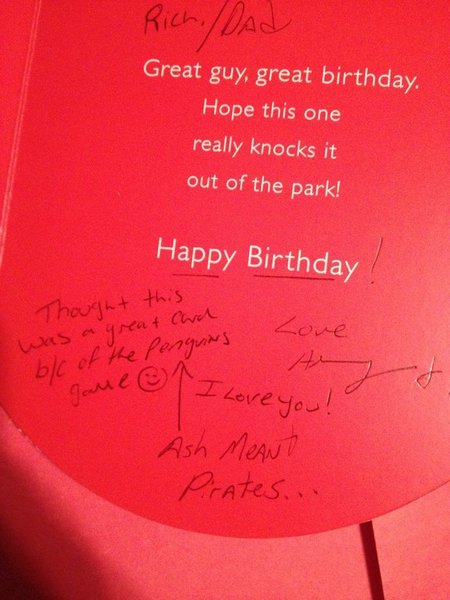 Rich./DAD
Great guy, great birthday.
Hope this one
really knocks it
out of the park!
Happy Birthday!
Thought this
was a great card
b/c of the Penguins
game
Love
I Love you!
Ash MEANT
Pirates...